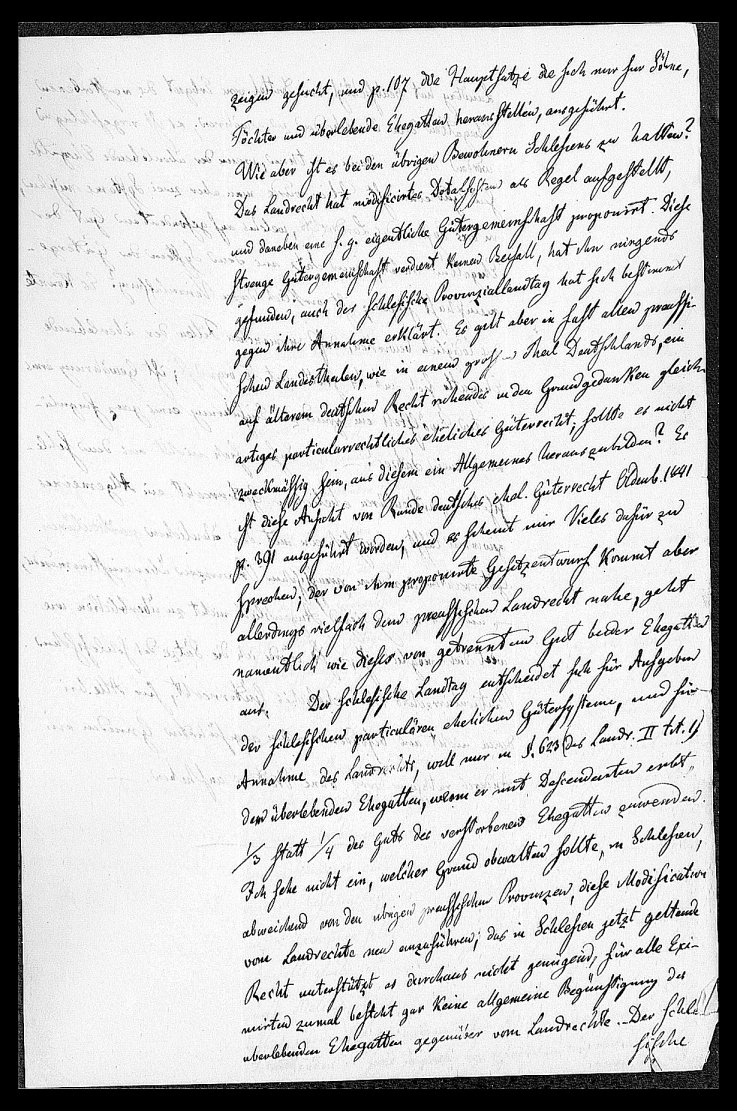 zeigend gesucht, und p. 107 die Hauptsätze die sich nur für Söhne,
Töchter und überlebende Ehegatten herausstellen, ausgeführt.
Wie aber ist es bei den übrigen Bewohnern Schlesiens zu halten?
Das Landrecht hat modificirtes Dotalsystem als Regel aufgestellt,
und daneben eine s. g. eigentliche Gütergemeinschaft proponirt. Diese
strenge Gütergemeinschaft verdient keinen Beifall, hat ihn nirgends
gefunden, auch der schlesische Provinziallandtag hat sich bestimmt
gegen ihre Annahme erklärt. Es gilt aber in fast allen preussi-
schen Landestheilen, wie in einem gross Theil Deutschlands, ein
auf älterem deutschen Recht ruhendes in den Grundgedanken gleich-
artiges particularrechtliches eheliches Güterrecht, sollte es nicht
zweckmässig sein, aus diesem ein Allgemeines herauszubilden? Es
ist diese Ansicht von Runde deutsches ehel. Güterrecht Oldenb. 1841
p. 391 ausgeführt worden, und es scheint mir Vieles dafür zu
sprechen; der von ihm proponirte Gesetzentwurf kommt aber
allerdings vielfach dem preussischen Landrecht nahe, geht
namentlich wie dieses von getrenntem Gut beider Ehegatten
aus. Der schlesische Landtag entscheidet sich für Aufgeben
der schlesischen particulären ehelichen Gütersysteme, und für
Annahme des Landrechts, will nur in §. 623 (des Landr. II tit. 1)
dem überlebenden Ehegatten, wenn er mit Descendenten erbt,
1/3 statt 1/4 des Guts des verstorbenen Ehegatten zuwenden.
Ich sehe nicht ein, welcher Grund obwalten sollte, in Schlesien,
abweichend von den übrigen preussischen Provinzen, diese Modification
vom Landrechte neu einzuführen; das in Schlesien jetzt geltende
Recht unterstützt es durchaus nicht genügend, für alle Exi-
mirten zumal besteht gar keine allgemeine Begünstigung des
überlebenden Ehegatten gegenüber vom Landrechte. – Der schle-
sische